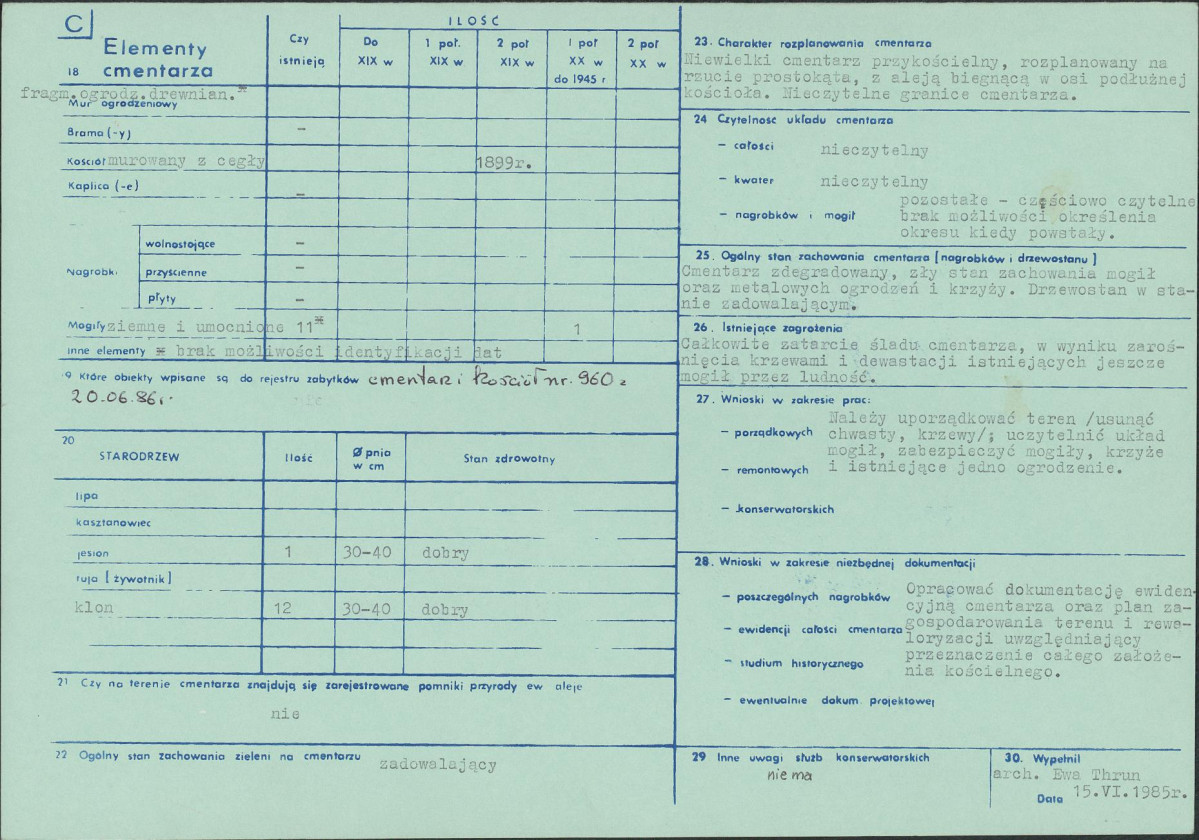 C
Elementy
18 cmentarza
Czy
istnieją
ILOŚĆ
Do
XIX w
1 poł.
XIX w
2 poł
XIX w
1 poł
XX w
do 1945 r
2 poł
XX w
fragm.ogrodz.drewnian.*
Mur ogrodzeniowy
Brama (-y) –
Kościół murowany z cegły 1899r.
Kaplica (-e) –
Nagrobki
wolnostojące –
przyścienne –
płyty –
Mogiły ziemne i umocnione 11* 1
inne elementy * brak możliwości identyfikacji dat
19 Które obiekty wpisane są do rejestru zabytków cmentarz i kościół nr. 960 z
20.06.86r.
nie
20
STARODRZEW
Ilość
Ø pnia
w cm
Stan zdrowotny
lipa
kasztanowiec
jesion 1 30-40 dobry
tuja [żywotnik]
klon 12 30-40 dobry
21 Czy na terenie cmentarza znajdują się zarejestrowane pomniki przyrody ew aleje
nie
22 Ogólny stan zachowania zieleni na cmentarzu zadowalający
23. Charakter rozplanowania cmentarza
Niewielki cmentarz przykościelny, rozplanowany na
rzucie prostokąta, z aleją biegnącą w osi podłużnej
kościoła. Nieczytelne granice cmentarza.
24 Czytelność układu cmentarza
– całości nieczytelny
– kwater nieczytelny
pozostałe - częściowo czytelne
– nagrobków i mogił brak możliwości określenia
okresu kiedy powstały.
25. Ogólny stan zachowania cmentarza [nagrobków i drzewostanu]
Cmentarz zdegradowany, zły stan zachowania mogił
oraz metalowych ogrodzeń i krzyży. Drzewostan w sta-
nie zadowalającym.
26. Istniejące zagrożenia
Całkowite zatarcie śladu cmentarza, w wyniku zaroś-
nięcia krzewami i dewastacji istniejących jeszcze
mogił przez ludność.
27. Wnioski w zakresie prac:
Należy uporządkować teren /usunąć
– porządkowych chwasty, krzewy/; uczytelnić układ
mogił, zabezpieczyć mogiły, krzyże
– remontowych i istniejące jedno ogrodzenie.
– konserwatorskich
28. Wnioski w zakresie niezbędnej dokumentacji
Opracować dokumentację ewiden-
– poszczególnych nagrobków cyjną cmentarza oraz plan za-
– ewidencji całości cmentarza gospodarowania terenu i rewa-
loryzacji uwzględniający
– studium historycznego przeznaczenie całego założe-
nia kościelnego.
– ewentualnie dokum. projektowej
29 Inne uwagi służb konserwatorskich
nie ma
30. Wypełnił
arch. Ewa Thrun
Data 15.VI.1985r.